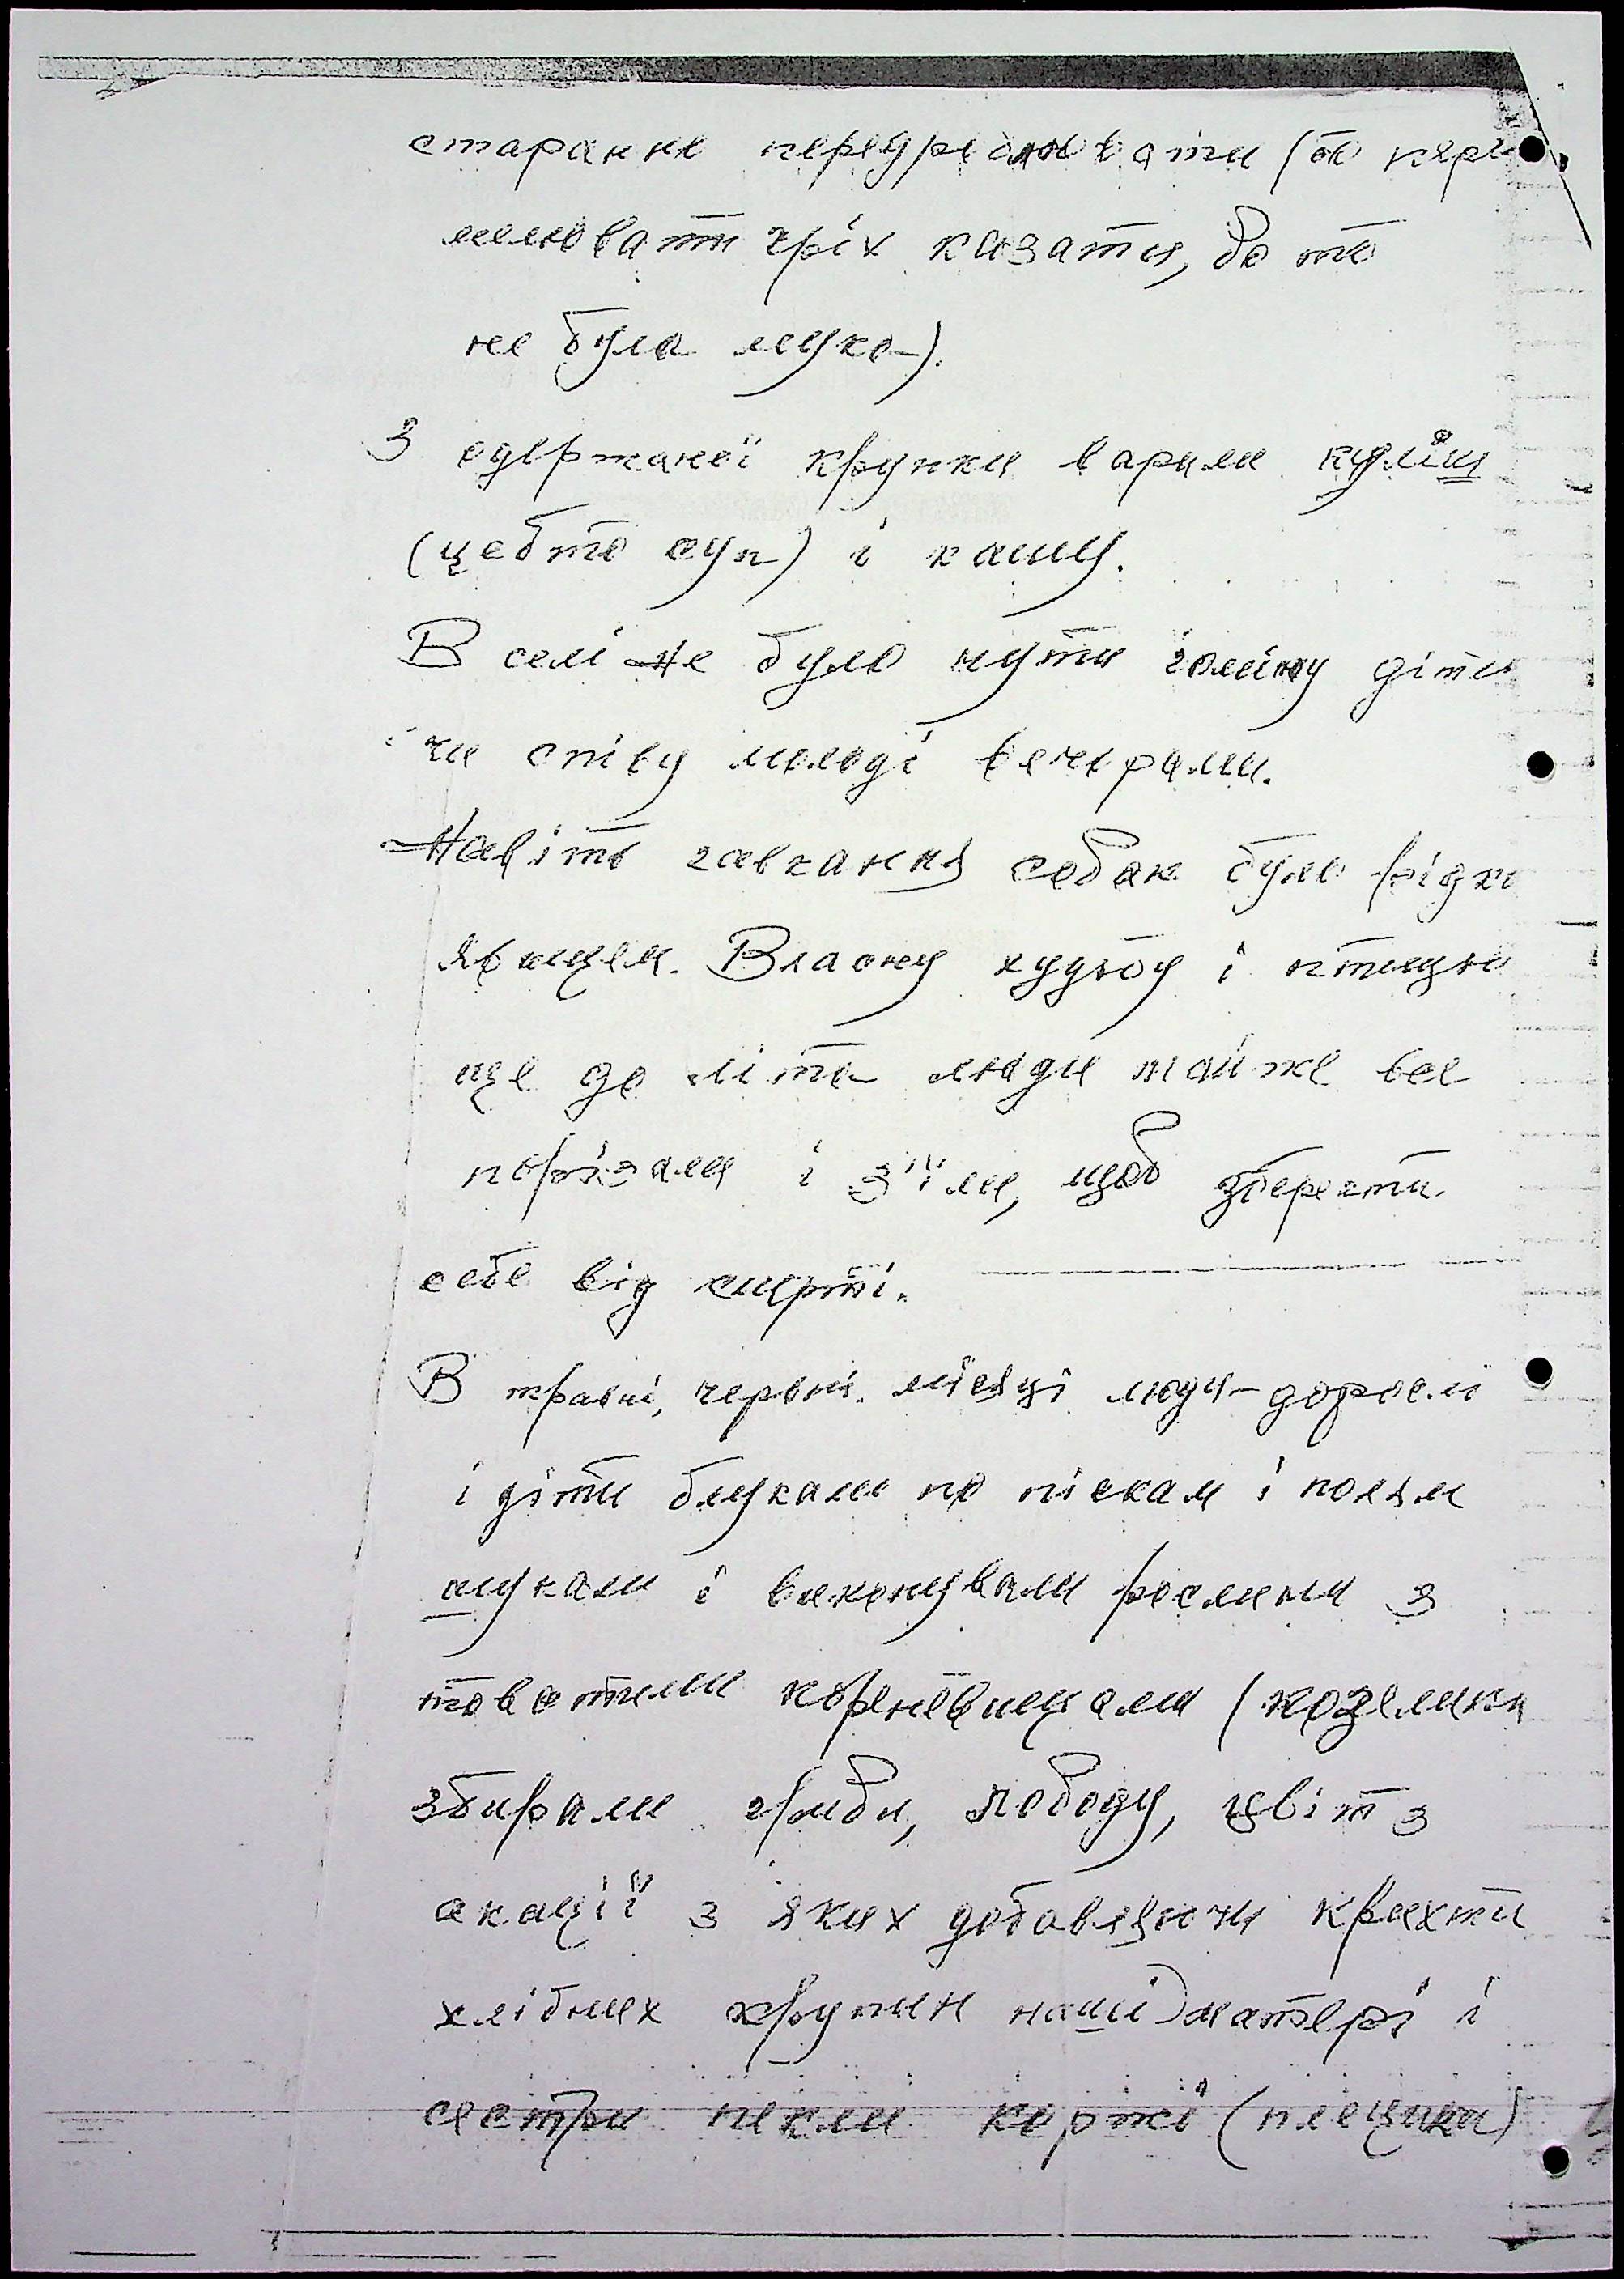 старанне передрелювати (бо пере
мелювати гріх казати, бо то
не була мука).
З одержаної крупки варили куліш
(цебто суп) і кашу.
В селі не було чути гоміну діти
чи співу молоді вечорами.
Навіть гавкання собак було рідки
явищем. Власну худобу і птицю
ще до літа люди майже все
порізали і з'їли, щоб зберегти
себе від смерті.
В травні, червні місяці люди - дорослі
і діти блукали по піскам і полям
шукали і викопували рослини з
товстими корневищами (козелики
збирали гриби, лободу, цвіт з
акації з яких добавляючи крихти
хлібних крупин наші матері і
сестри пекли коржі (плецики)